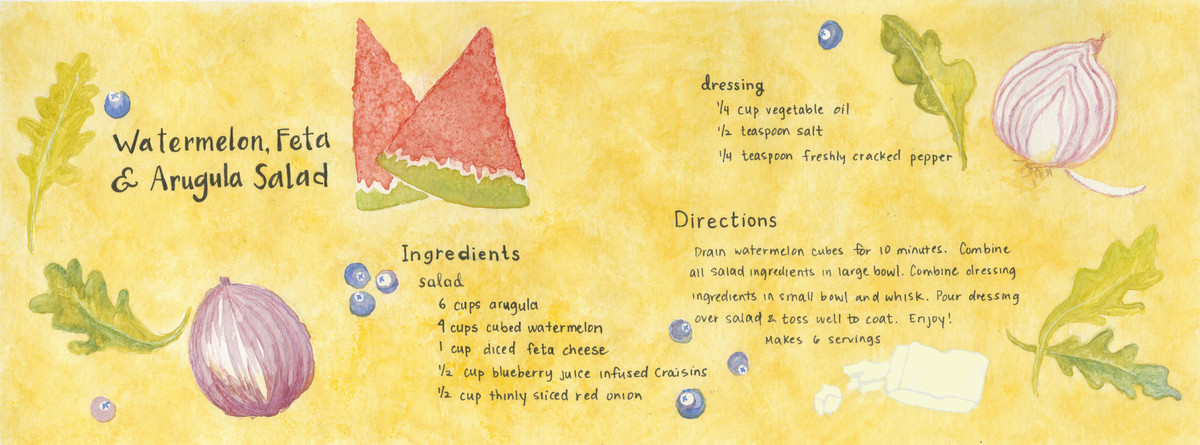 Watermelon, Feta
& Arugula Salad
Ingredients
salad
6 cups arugula
4 cups cubed watermelon
1 cup diced feta cheese
1/2 cup blueberry juice infused Craisins
1/2 cup thinly sliced red onion
dressing
1/4 cup vegetable oil
1/2 teaspoon salt
1/4 teaspoon freshly cracked pepper
Directions
Drain watermelon cubes for 10 minutes. Combine
all salad ingredients in large bowl. Combine dressing
ingredients in small bowl and whisk. Pour dressing
over salad & toss well to coat. Enjoy!
Makes 6 servings